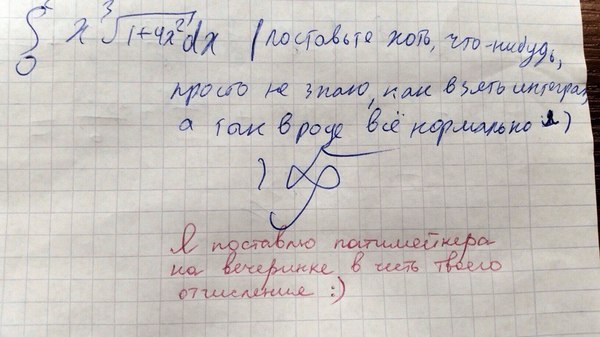 ∫₀ x ∛(1+4x²) dx (поставьте хоть, что-нибудь,
просто не знаю, как взять интеграл,
а так вроде всё нормально :)
Я поставлю патимейкера
на вечеринке в честь твоего
отчисления :)